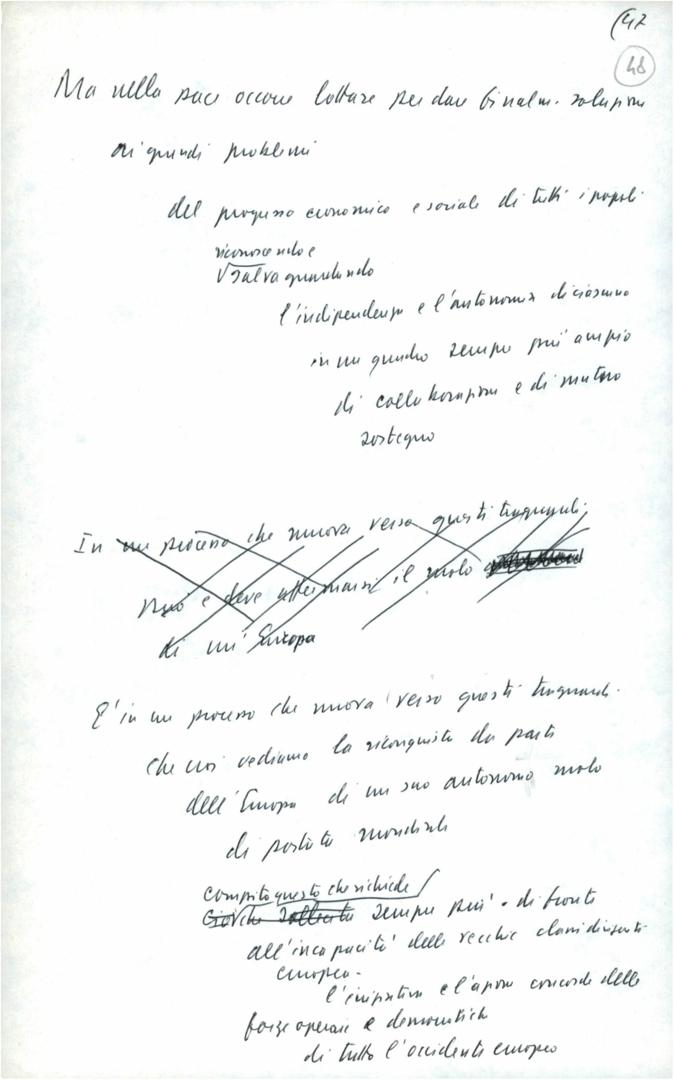 (47
48
Ma nella pace occorre lottare per dare finalm. soluzione
ai grandi problemi
del progresso economico e sociale di tutti i popoli
riconoscendo e
√ salvaguardando
l'indipendenza e l'autonomia di ciascuno
in un quadro sempre più ampio
di collaborazione e di mutuo
sostegno
In un processo che muova verso questi traguardi
può e deve affermarsi il ruolo
di un'Europa
E' in un processo che muova verso questi traguardi.
che noi vediamo la riconquista da parte
dell'Europa di un suo autonomo ruolo
di portata mondiale
compito questo che richiede
Ciò che sollecita sempre più - di fronte
all'incapacità delle vecchie classi dirigenti
europee -
l'iniziativa e l'azione concorde delle
forze operaie e democratiche
di tutto l'occidente europeo